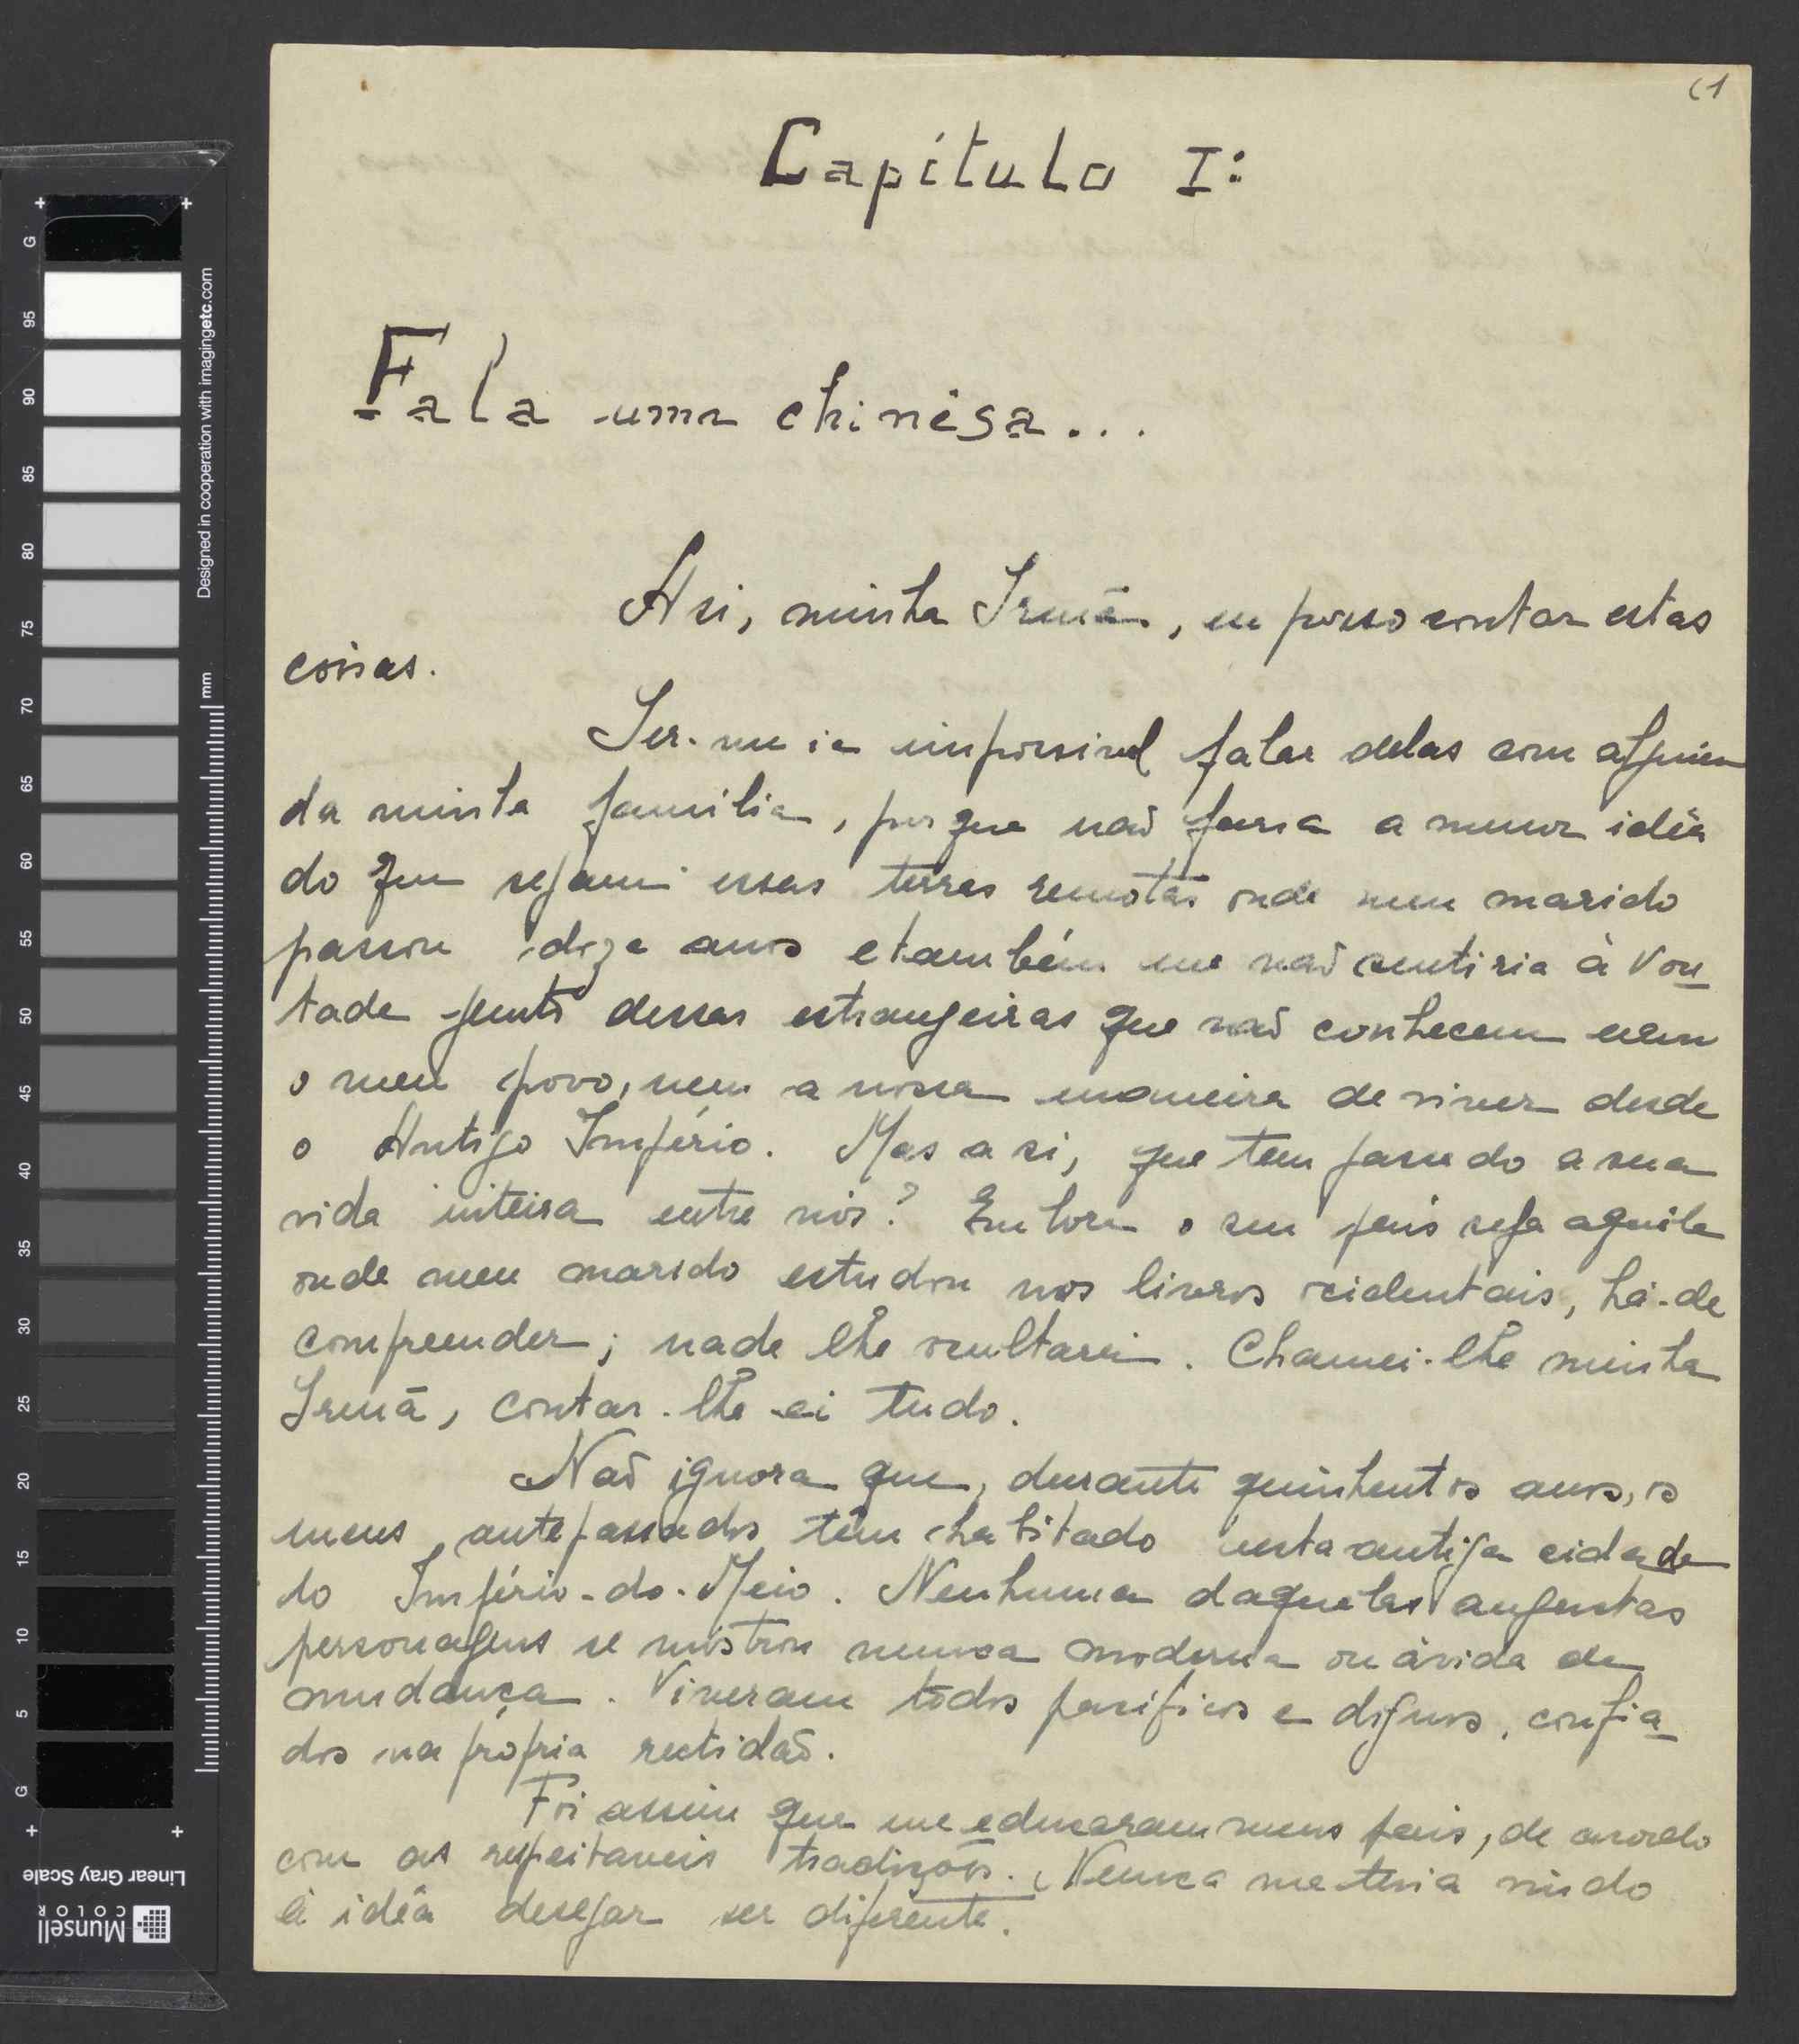 (1
Capítulo I:
Fala uma chinêsa...
A si, minha Irmã, eu posso contar estas
coisas.
Ser-me ia impossivel falar delas com alguem
da minha familia, porque não fazia a menor idéa
do que sejam essas terras remotas onde meu marido
passou doze anos e também me não sentiria à von
tade junto dessas estrangeiras que não conhecem nem
o meu povo, nem a nossa maneira de viver desde
o Antigo Império. Mas a si, que tem passado a sua
vida inteira entre nós? Embora o seu pais seja aquele
onde meu marido estudou nos livros ocidentais, há-de
compreender; nada lhe ocultarei. Chamei-lhe minha
Irmã, contar-lhe-ei tudo.
Não ignora que, durante quinhentos anos, os
meus antepassados têm habitado nesta antiga cidade
do Império-do-Meio. Nenhuma daquelas augustas
personagens se mostrou nunca moderna ou ávida de
mudança. Viveram todos pacificos e dignos, confia
dos na própria rectidão.
Foi assim que me educaram meus pais, de acordo
com as respeitaveis tradições. Nunca me teria vindo
à idéa desejar ser diferente.
Designed in cooperation with imagingetc.com
mm
G
95
90
85
80
75
70
65
60
55
50
45
40
35
30
25
20
15
10
5
G
Linear Gray Scale
Munsell
COLOR